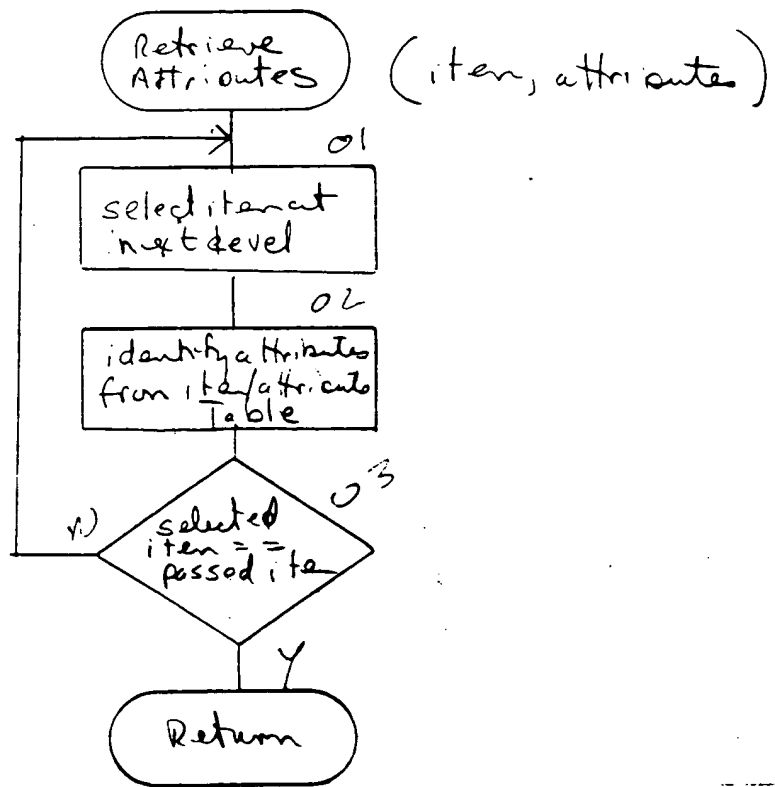 Retrieve
Attributes
(item, attributes)
01
select item at
next level
02
identify attributes
from item/attribute
Table
03
N
selected
item = =
passed item
Y
Return